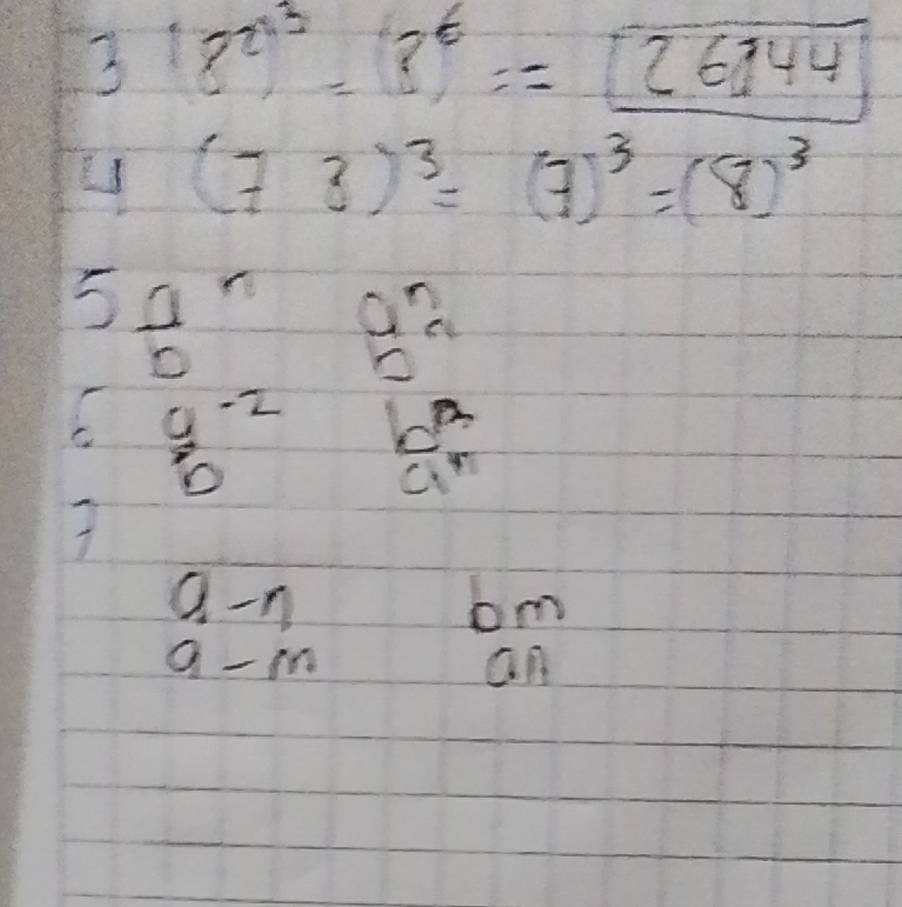 3 (8²)³ = (8)⁶ == 26144
4 (7 8)³ = (7)³ = (8)³
5 a ⁿ aⁿ
b bⁿ
6 a⁻² bⁿ
b aⁿ
7
a-n bm
a-m an